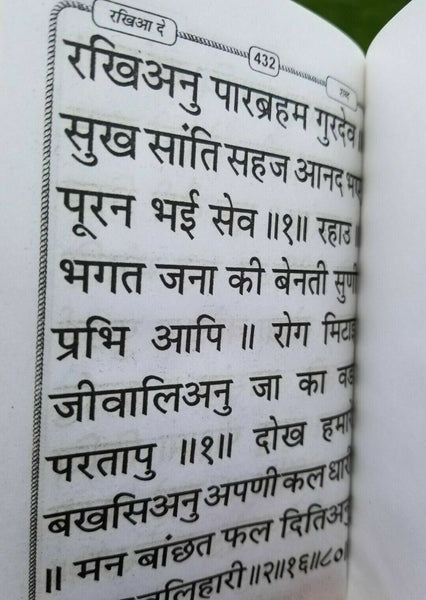 रखिआ दे
432
शबद
रखिअनु पारब्रहम गुरदेव ॥
सुख सांति सहज आनद भए
पूरन भई सेव ॥१॥ रहाउ ।
भगत जना की बेनती सुणी
प्रभि आपि ॥ रोग मिटाइ
जीवालिअनु जा का वड
परतापु ॥१॥ दोख हमारे
बखसिअनु अपणी कल धारी
॥ मन बांछत फल दितिअनु
॥२॥१६॥८०॥